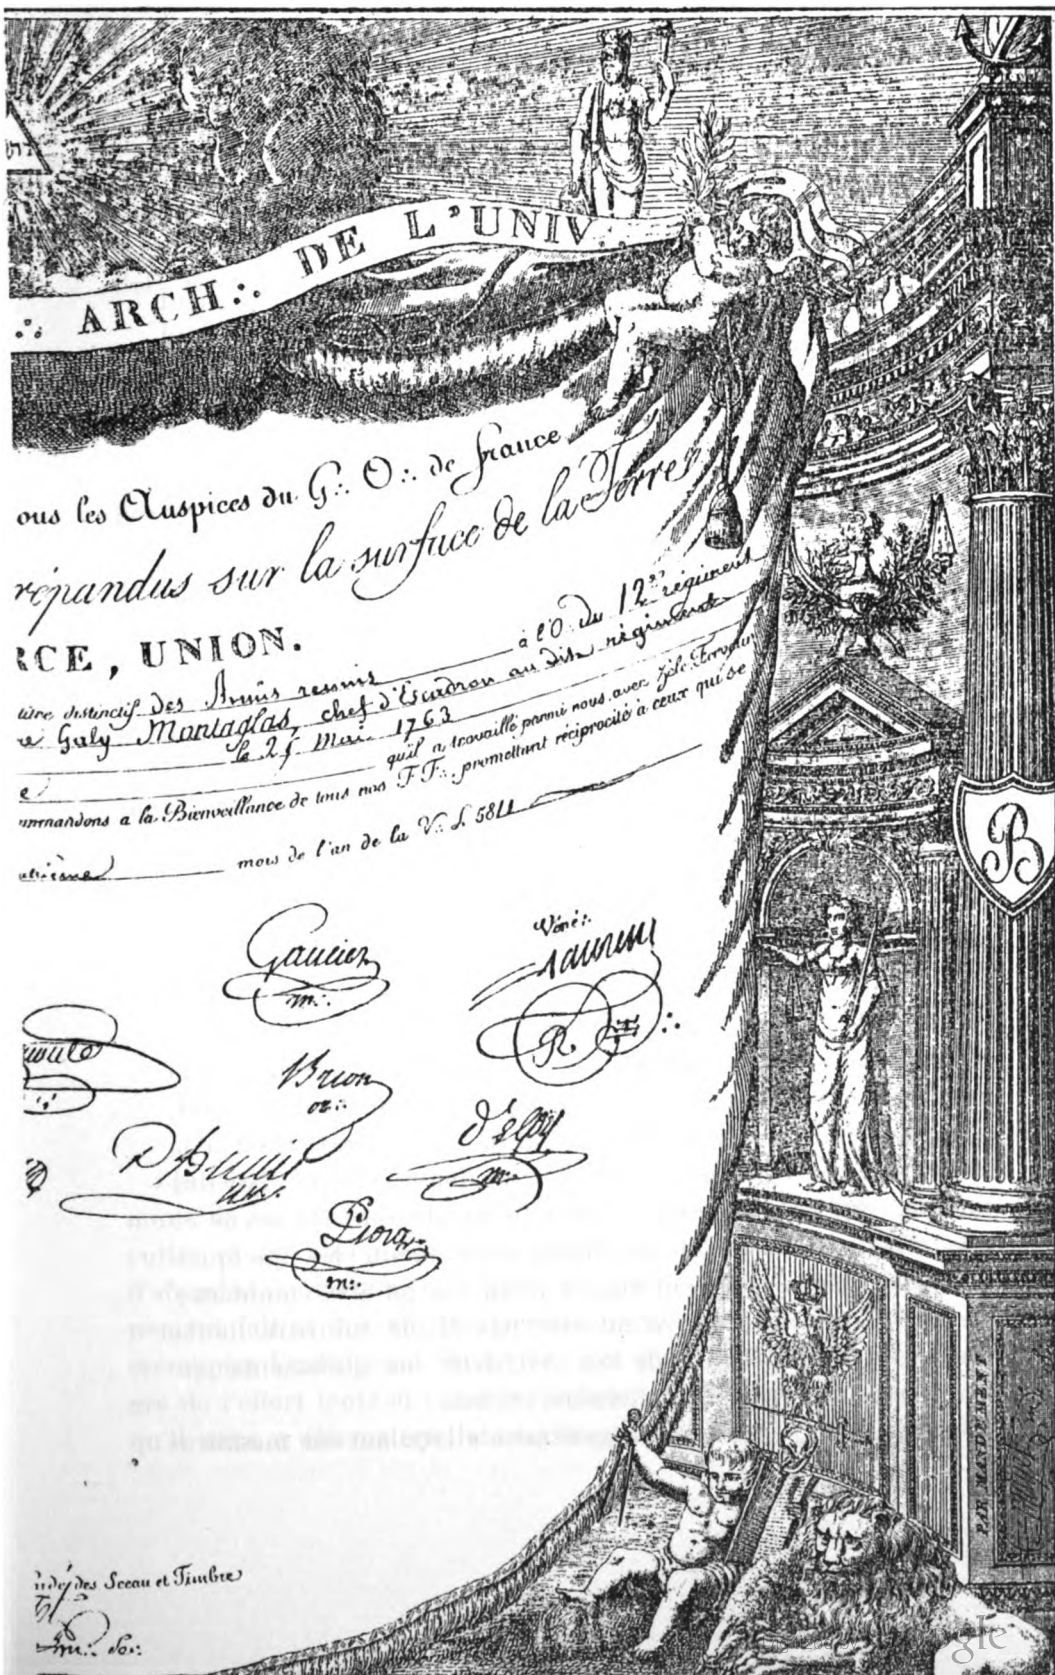 ∴ ARCH∴ DE L'UNIV∴
ous les Auspices du G∴ O∴ de France
répandus sur la surface de la Terre
RCE, UNION.
titre distinctif des Amis reunis à l'O∴ du 12e régiment
re Galy Montaglas, chef d'Escadron au dit régiment
le 25 Mai 1763 qu'il a travaillé parmi nous avec Zèle Ferveur
e
ommandons a la Bienveillance de tous nos F F∴ promettant réciprocité à ceux qui se
mois de l'an de la V∴ L 5811
B
Véné∴
Gaucier
m∴
R
Brion
or∴
m∴
m∴
PAR MANDEMENT
des Sceau et Timbre
Google